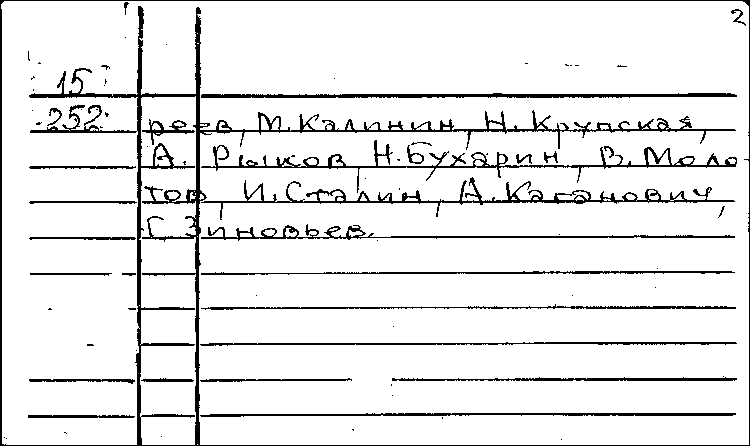 2
15
252
реев, М. Калинин, Н. Крупская,
А. Рыков, Н. Бухарин, В. Моло-
тов, И. Сталин, А. Каганович,
Г. Зиновьев.